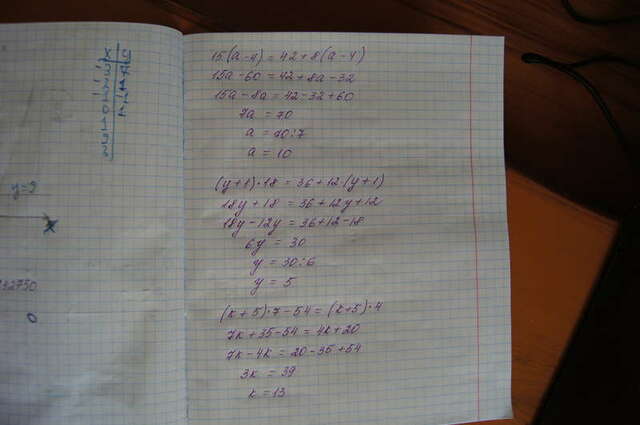 y=9
32750
0
15(a-4)=42+8(a-4)
15a-60=42+8a-32
15a-8a=42-32+60
7a=70
a=70:7
a=10
(y+1)·18=36+12(y+1)
18y+18=36+12y+12
18y-12y=36+12-18
6y=30
y=30:6
y=5
(k+5)·7-54=(k+5)·4
7k+35-54=4k+20
7k-4k=20-35+54
3k=39
k=13